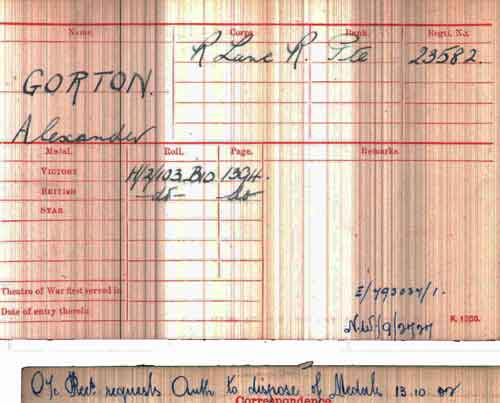 Name. Corps. Rank. Regtl. No.
GORTON. R Lanc R. Pte 23582.
Alexander
Medal. Roll. Page. Remarks.
VICTORY H/2/103.B10 1394.
BRITISH -do- do
STAR
Theatre of War first served in
Date of entry therein
E/493037/1.
K. 1380.
O/c Rect requests Auth to dispose of Medals 13.10.
Correspondence